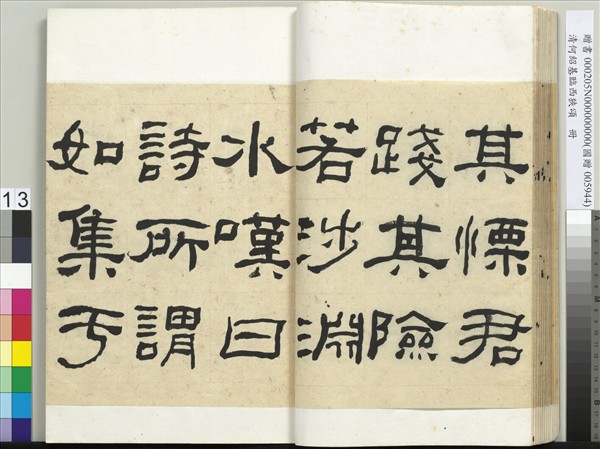 其慄君
踐其險
若涉淵
冰嘆曰
詩所謂
如集于
贈書 000205N000000000(國贈 005944)
清何紹基臨西狹頌 冊
13